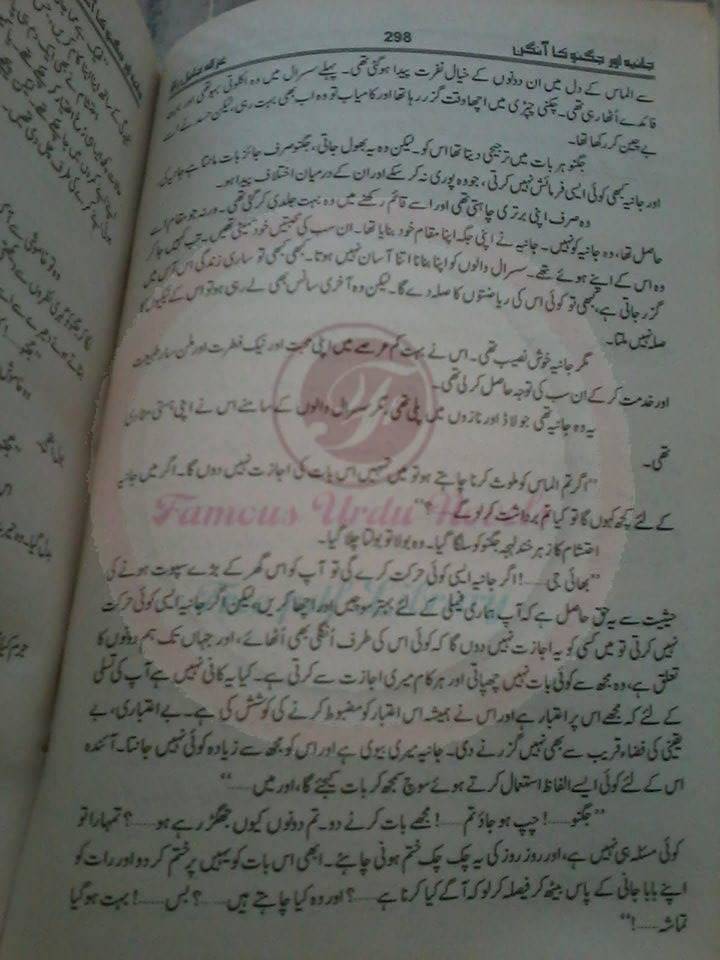 جانیہ اور جگنو کا آنگن
298
سے الماس کے دل میں ان دونوں کے خیال نفرت پیدا ہوگئی تھی۔ پہلے سسرال میں وہ اکلوتی بہو تھی اور
فائدے اُٹھا رہی تھی۔ چکنی چپڑی میں اچھا وقت گزر رہا تھا اور کامیاب تو وہ اب بھی بہت رہی، لیکن حسد نے اسے
بے چین کر رکھا تھا۔
جگنو ہر بات میں ترجیح دیتا تھا اس کو۔ لیکن وہ یہ بھول جاتی، جگنو صرف جائز بات مانتا ہے جانیہ کی
اور جانیہ کبھی کوئی ایسی فرمائش نہیں کرتی، جو وہ پوری نہ کر سکے اور ان کے درمیان اختلاف پیدا ہو۔
وہ صرف اپنی برتری چاہتی تھی اور اسے قائم رکھنے میں وہ بہت جلدی کر گئی تھی۔ ورنہ جو مقام اسے
حاصل تھا، وہ جانیہ کو نہیں۔ جانیہ نے اپنی جگہ اپنا مقام خود بنایا تھا۔ ان سب کی محبتیں خود سمیٹی تھیں۔ تب کہیں جا کر
وہ اس کے اپنے ہوئے تھے۔ سسرال والوں کو اپنا بنانا اتنا آسان نہیں ہوتا۔ کبھی کبھی تو ساری زندگی اس آس میں
گزر جاتی ہے، کبھی تو کوئی اس کی ریاضتوں کا صلہ دے گا۔ لیکن وہ آخری سانس بھی لے رہی ہو تو اس کے نیکیوں کا
صلہ نہیں ملتا۔
مگر جانیہ خوش نصیب تھی۔ اس نے بہت کم عرصے میں اپنی محبت اور نیک فطرت اور ملن سار طبیعت
اور خدمت کر کے ان سب کی توجہ حاصل کر لی تھی۔
یہ وہ جانیہ تھی جو لاڈ اور نازوں میں پلی تھی، مگر سسرال والوں کے سامنے اس نے اپنی ہستی
تھی۔
"اگر تم الماس کو ملوث کرنا چاہتے ہو تو میں تمہیں اس بات کی اجازت نہیں دوں گا۔ اگر میں جانیہ
کے لئے کچھ کہوں گا تو کیا تم برداشت کر لو گے......؟"
احتشام کا زہر خند لہجہ جگنو کو سلگا گیا۔ وہ بولا تو بولتا چلا گیا۔
"بھائی جی......! اگر جانیہ ایسی کوئی حرکت کرے گی تو آپ کو اس گھر کے بڑے سپوت ہونے کی
حیثیت سے یہ حق حاصل ہے کہ آپ ہماری فیملی کے لئے بہتر سوچیں اور اچھا کریں، لیکن اگر جانیہ ایسی کوئی حرکت
نہیں کرتی تو میں کسی کو یہ اجازت نہیں دوں گا کہ کوئی اس کی طرف اُنگلی بھی اُٹھائے، اور جہاں تک ہم دونوں کا
تعلق ہے، وہ مجھ سے کوئی بات نہیں چھپاتی اور ہر کام میری اجازت سے کرتی ہے۔ کیا یہ کافی نہیں ہے آپ کی تسلی
کے لئے کہ مجھے اس پر اعتبار ہے اور اس نے ہمیشہ اس اعتبار کو مضبوط کرنے کی کوشش کی ہے۔ بے اعتباری، بے
یقینی کی فضاء قریب سے بھی نہیں گزرنے دی۔ جانیہ میری بیوی ہے اور اس کو مجھ سے زیادہ کوئی نہیں جانتا۔ آئندہ
اس کے لئے کوئی ایسے الفاظ استعمال کرتے ہوئے سوچ سمجھ کر بات کیجئے گا، اور میں......"
"جگنو......! چپ ہو جاؤ تم......! مجھے بات کرنے دو۔ تم دونوں کیوں جھگڑ رہے ہو......؟ تمہارا تو
کوئی مسئلہ ہی نہیں ہے، اور روز روز کی یہ چک چک ختم ہونی چاہئے۔ ابھی اس بات کو یہیں پر ختم کر دو اور رات کو
اپنے بابا جانی کے پاس بیٹھ کر فیصلہ کر لو کہ آگے کیا کرنا ہے......؟ اور وہ کیا چاہتے ہیں......؟ بس......! بہت ہو گیا
تماشہ......!"
Famous Urdu Novels